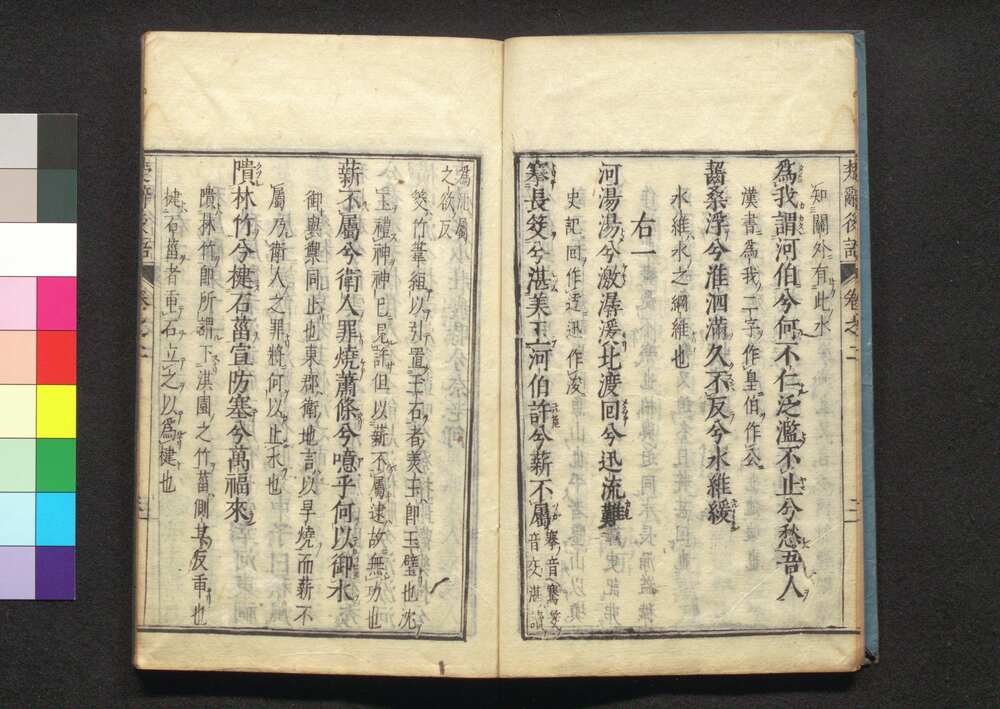 楚辭後語 卷之二
知關外有此水
為我謂河伯兮何不仁泛濫不止兮愁吾人
漢書為我二字作皇伯作公
齧桑浮兮淮泗滿久不反兮水維緩
水維水之綱維也
右一
河湯湯兮激潺湲北渡回兮迅流難
史記回作迂迅作浚
搴長筊兮湛美玉河伯許兮薪不屬搴音騫筊音交湛讀
為沈屬之欲反
筊竹葦絙以引置土石者美玉卽玉璧也沈
玉禮神神巳見許但以薪不屬逮故無功也
薪不屬兮衛人罪燒蕭條兮噫乎何以御水
御與禦同止也東郡衛地言以旱燒而薪不
屬乃衛人之罪將何以止水也
隤林竹兮楗石菑宣防塞兮萬福來
隤林竹卽所謂下淇園之竹菑側其反重也
楗石菑者重石立之以為楗也
楚辭後語 卷之二